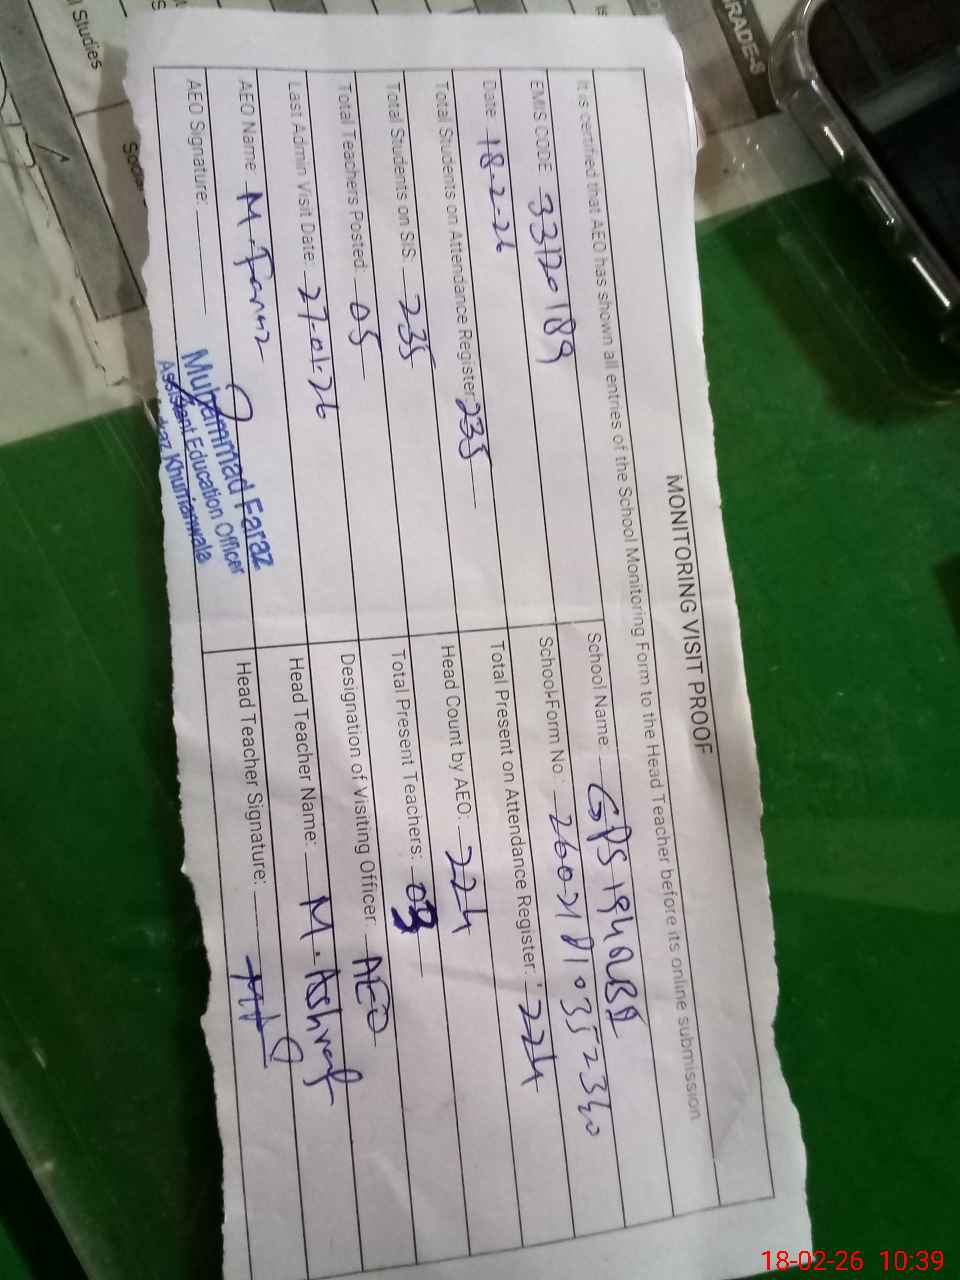 MONITORING VISIT PROOF
It is certified that AEO has shown all entries of the School Monitoring Form to the Head Teacher before its online submission
EMIS CODE 33120189
School Name:
Date 18-2-26
School-Form No:
Total Students on Attendance Register: 235
Total Present on Attendance Register: 224
Total Students on SIS: 235
Head Count by AEO: 224
Total Teachers Posted: 05
Total Present Teachers: 03
Last Admin Visit Date: 27-01-26
Designation of Visiting Officer: AEO
AEO Name M. Faraz
Head Teacher Name: M. Ashraf
AEO Signature:
Head Teacher Signature:
Muhammad Faraz
Assistant Education Officer
Khurrianwala
GRADE-8
Studies
18-02-26 10:39